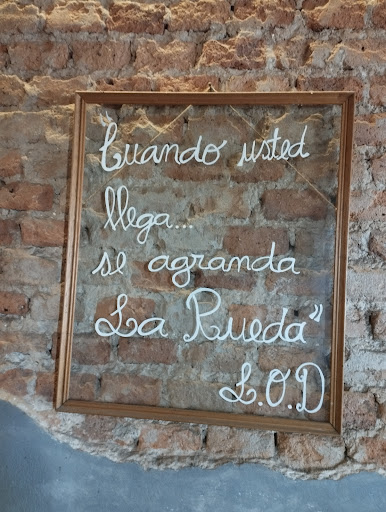 Cuando usted
llega...
se agranda
La Rueda"
L.O.D